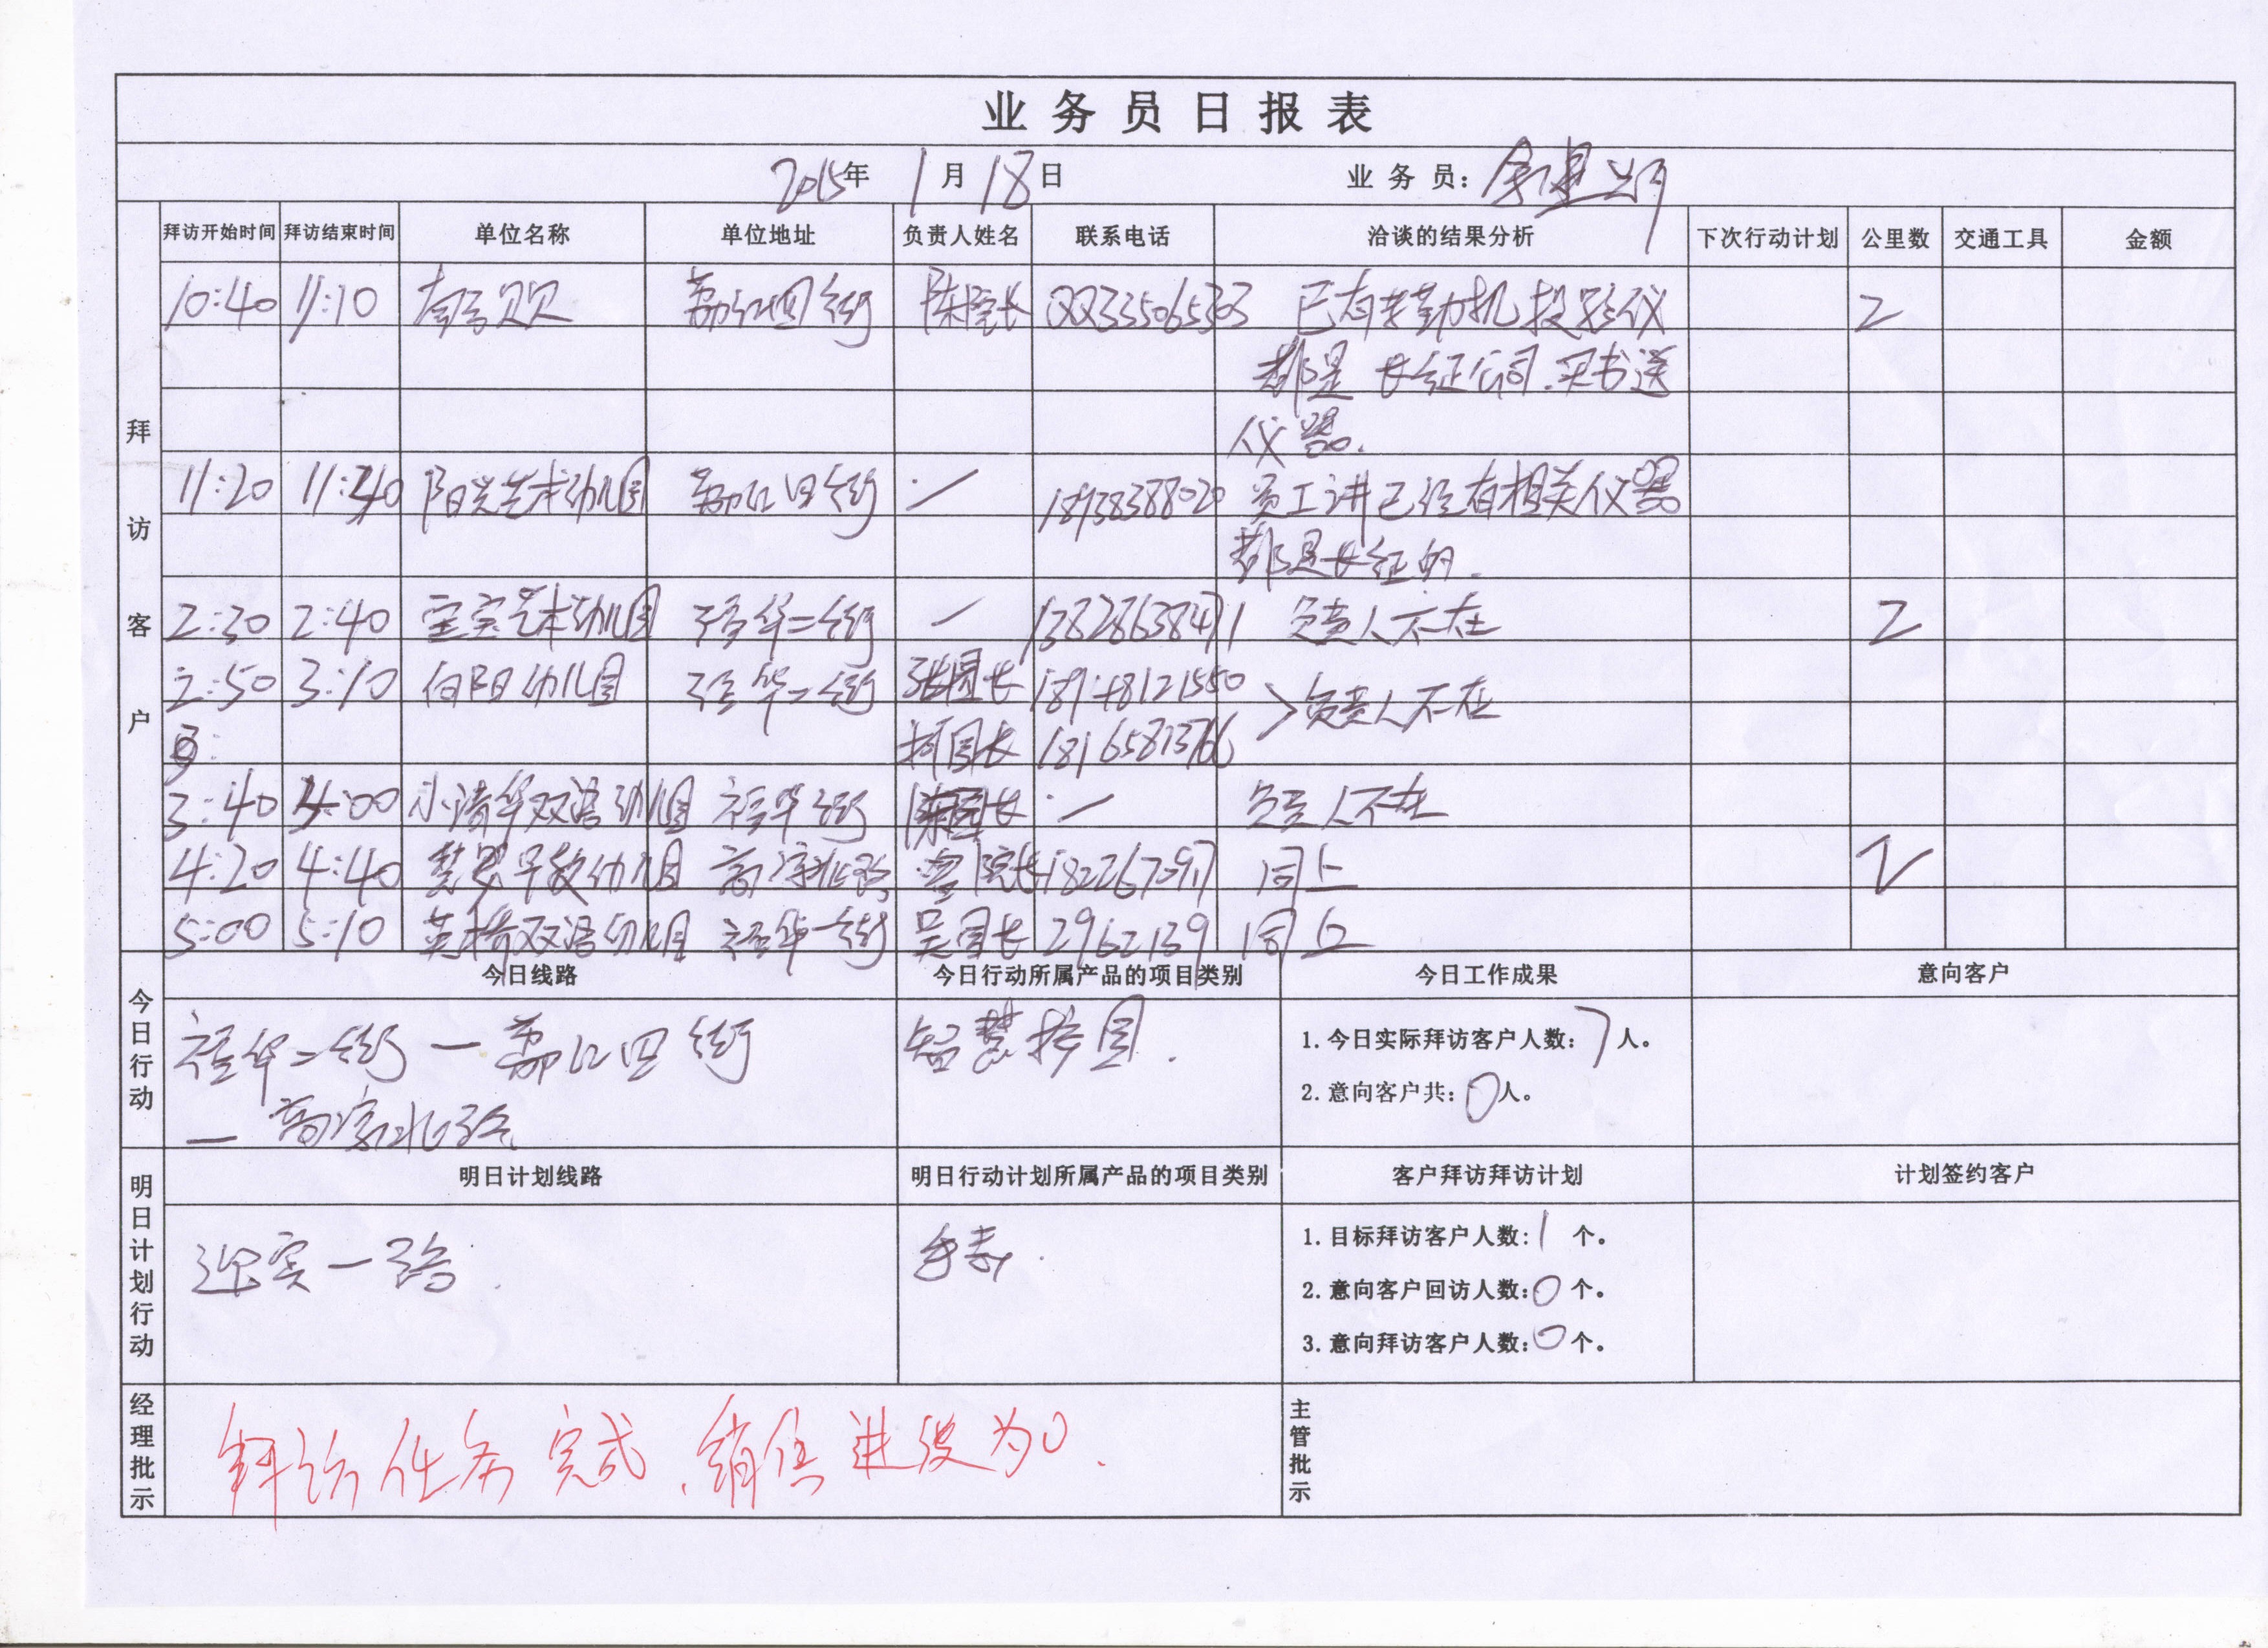 业务员日报表
2015年 1月18日 业务员:
拜访客户
拜访开始时间 拜访结束时间 单位名称 单位地址 负责人姓名 联系电话 洽谈的结果分析 下次行动计划 公里数 交通工具 金额
10:40 11:10 荔红四街 陈院长 QQ33506533 已有考勤机投影仪 2
都是长征公司.买书送
仪器.
11:20 11:40 阳光艺术幼儿园 荔红四街 / 18938388020 员工讲已经有相关仪器
都是长征的.
2:30 2:40 宝宝艺术幼儿园 福华二街 / 13828638471 负责人不在 2
2:50 3:10 向阳幼儿园 福华二街 张园长 >负责人不在
柯园长 18165813766
3:40 4:00 小清华双语幼儿园 福华街 陈园长 / 负责人不在
4:20 4:40 早教幼儿园 北路 院长 同上 2
5:00 5:10 双语幼儿园 福华一街 吴园长 2962139 同上
今日行动
今日线路 今日行动所属产品的项目类别 今日工作成果 意向客户
福华二街一荔红四街 智慧校园.
一 北路
1.今日实际拜访客户人数:7人。
2.意向客户共:0人。
明日计划行动
明日计划线路 明日行动计划所属产品的项目类别 客户拜访拜访计划 计划签约客户
迎宾一路.
1.目标拜访客户人数:1个。
2.意向客户回访人数:0个。
3.意向拜访客户人数:0个。
经理批示
拜访任务完成、销售进度为0.
主管批示